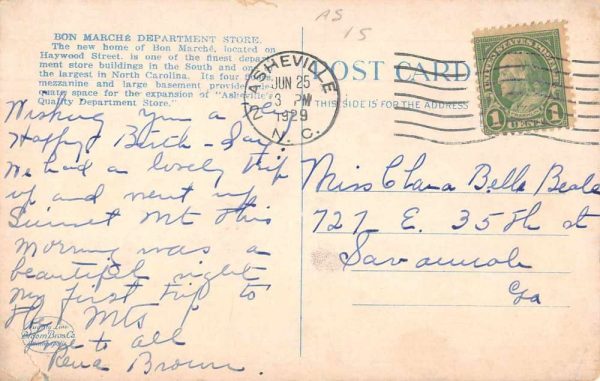 AS
15
BON MARCHÉ DEPARTMENT STORE.
The new home of Bon Marché, located on
Haywood Street, is one of the finest depart-
ment store buildings in the South and one of
the largest in North Carolina. Its four floors,
mezzanine and large basement provide ade-
quate space for the expansion of "Asheville's
Quality Department Store."
POST CARD
THIS SIDE IS FOR THE ADDRESS
ASHEVILLE
N. C.
2
JUN 25
3 PM
1929
UNITED STATES POSTAGE
1 1
Wishing you a
Happy Birth-day.
We had a lovely trip
up and went up
Sunset Mt this
morning was a
beautiful sight
my first trip to
the Mts
Love to all
Rena Brown.
Miss Clara Belle Beale
727 E. 35th st
Savannah
Ga